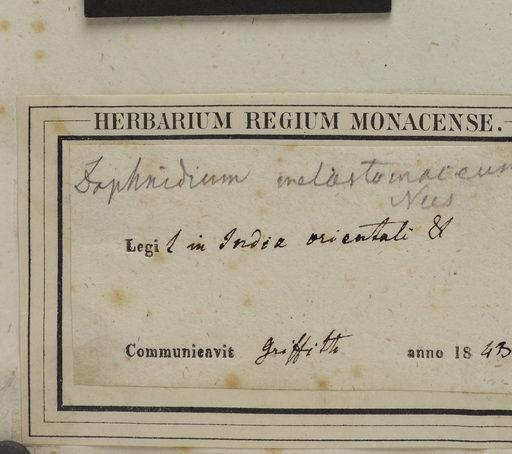 HERBARIUM REGIUM MONACENSE.
Daphnidium melastomaceum
Nees
Legit in India orientali &
Communicavit Griffith anno 1843